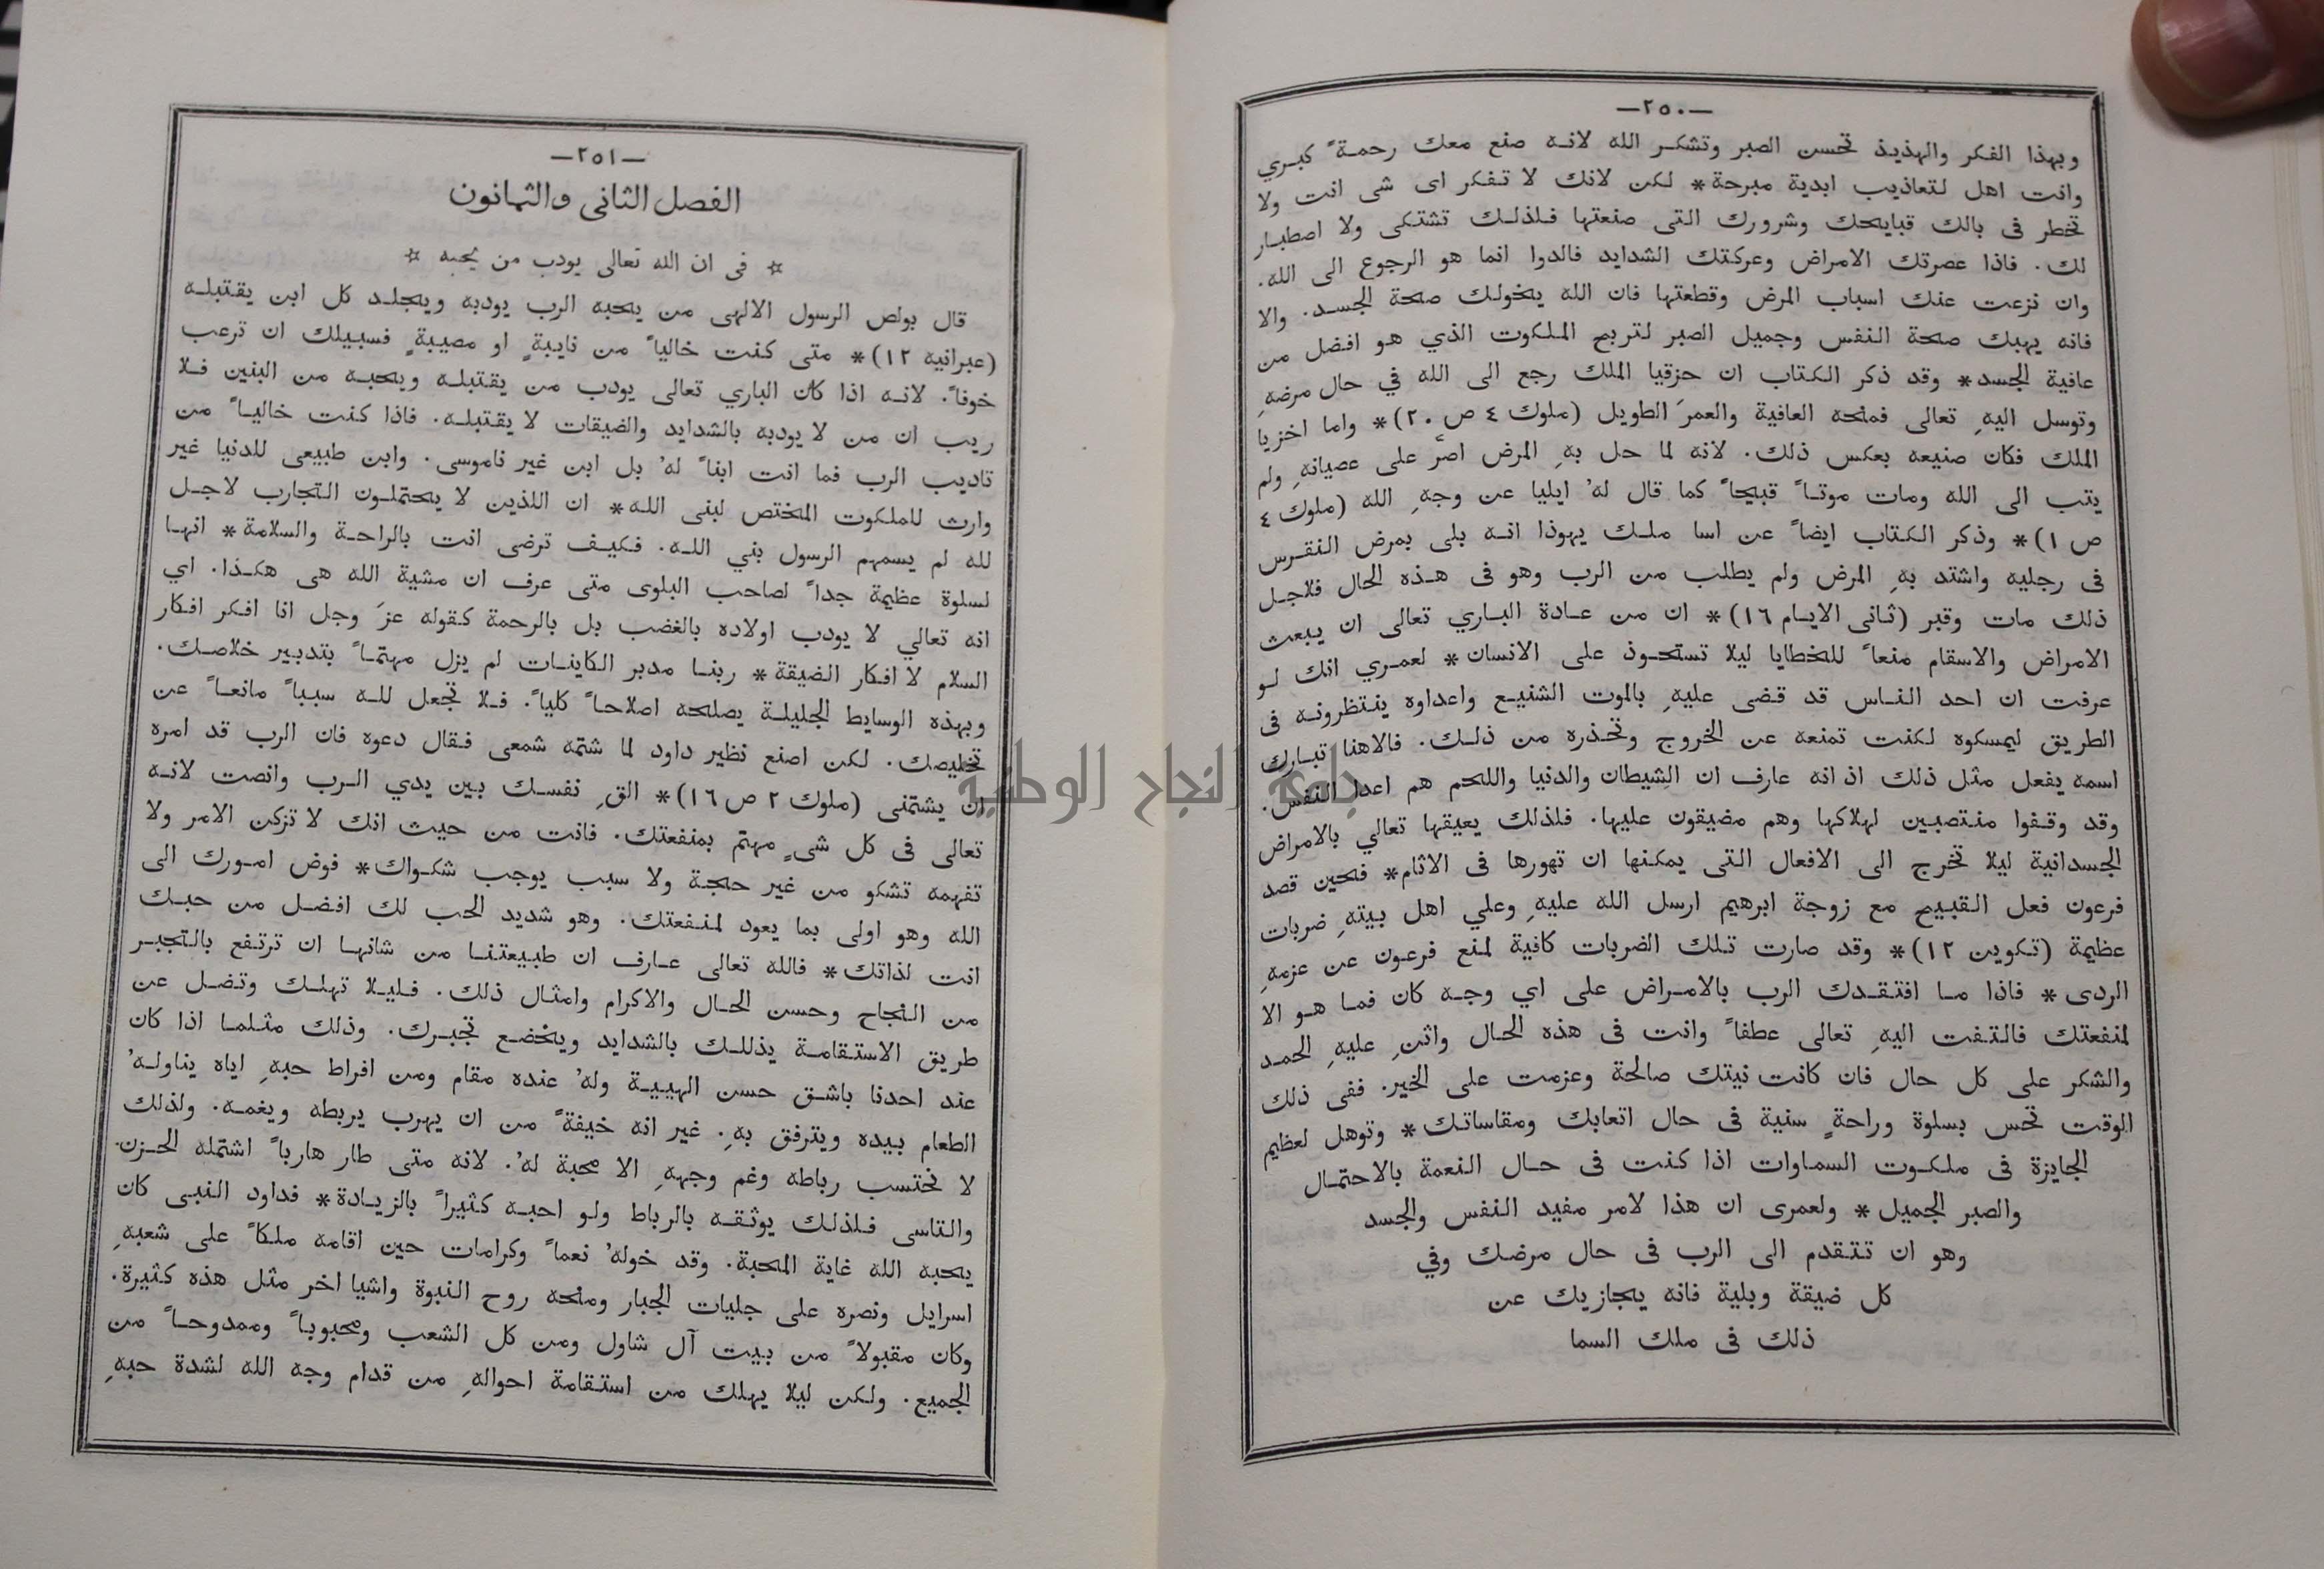 —٢٥٠—
وبهذا الفكر والهذيذ تحسن الصبر وتشكر الله لانه صنع معك رحمةً كبري
وانت اهل لتعاذيب ابدية مبرحة* لكن لانك لا تفكر اى شى انت ولا
تخطر فى بالك قبايحك وشرورك التى صنعتها فلذلك تشتكى ولا اصطبار
لك. فاذا عصرتك الامراض وعركتك الشدايد فالدوا انما هو الرجوع الى الله.
وان نزعت عنك اسباب المرض وقطعتها فان الله يخولك صحة الجسد. والا
فانه يهبك صحة النفس وجميل الصبر لتربح الملكوت الذي هو افضل من
عافية الجسد* وقد ذكر الكتاب ان حزقيا الملك رجع الى الله في حال مرضهِ
وتوسل اليهِ تعالى فمنحه العافية والعمرَ الطويل (ملوك ٤ ص ٢٠)* واما اخزيا
الملك فكان صنيعه بعكس ذلك. لانه لما حل بهِ المرض اصرَّ على عصيانهِ ولم
يتب الى الله ومات موتاً قبيحاً كما قال لهُ ايليا عن وجهِ الله (ملوك ٤
ص ١)* وذكر الكتاب ايضاً عن اسا ملك يهوذا انه بلى بمرض النقرس
فى رجليه واشتد بهِ المرض ولم يطلب من الرب وهو فى هذه الحال فلاجل
ذلك مات وقبر (ثانى الايام ١٦)* ان من عادة الباري تعالى ان يبعث
الامراض والاسقام منعاً للخطايا ليلا تستحوذ على الانسان* لعمري انك لو
عرفت ان احد الناس قد قضى عليهِ بالموت الشنيع واعداوه ينتظرونه فى
الطريق ليمسكوه لكنت تمنعه عن الخروج وتحذره من ذلك. فالاهنا تبارك
اسمه يفعل مثل ذلك اذ انه عارف ان الشيطان والدنيا واللحم هم اعدا النفس.
وقد وقفوا منتصبين لهلاكها وهم مضيقون عليها. فلذلك يعيقها تعالي بالامراض
الجسدانية ليلا تخرج الى الافعال التى يمكنها ان تهورها فى الاثام* فحين قصد
فرعون فعل القبيح مع زوجة ابرهيم ارسل الله عليهِ وعلي اهل بيتهِ ضربات
عظيمة (تكوين ١٢)* وقد صارت تلك الضربات كافية لمنع فرعون عن عزمهِ
الردى* فاذا ما افتقدك الرب بالامراض على اي وجه كان فما هو الا
لمنفعتك فالتفت اليهِ تعالى عطفاً وانت فى هذه الحال واثنِ عليهِ الحمد
والشكر على كل حال فان كانت نيتك صالحة وعزمت على الخير. ففى ذلك
الوقت تحس بسلوة وراحةٍ سنية فى حال اتعابك ومقاساتك* وتوهل لعظيم
الجايزة فى ملكوت السماوات اذا كنت فى حال النعمة بالاحتمال
والصبر الجميل* ولعمرى ان هذا لامر مفيد النفس والجسد
وهو ان تتقدم الى الرب فى حال مرضك وفي
كل ضيقة وبلية فانه يجازيك عن
ذلك فى ملك السما
—٢٥١—
الفصل الثانى والثمانون
☆ فى ان الله تعالى يودب من يحبه ☆
قال بولص الرسول الالهى من يحبه الرب يودبه ويجلد كل ابن يقتبله
(عبرانيه ١٢)* متى كنت خالياً من نايبةٍ او مصيبةٍ فسبيلك ان ترعب
خوفاً. لانه اذا كان الباري تعالى يودب من يقتبله ويحبه من البنين فلا
ريب ان من لا يودبه بالشدايد والضيقات لا يقتبله. فاذا كنت خالياً من
تاديب الرب فما انت ابناً لهُ بل ابن غير ناموسى. وابن طبيعى للدنيا غير
وارث للملكوت المختص لبنى الله* ان اللذين لا يحتملون التجارب لاجل
لله لم يسمهم الرسول بني الله. فكيف ترضى انت بالراحة والسلامة* انها
لسلوة عظيمة جداً لصاحب البلوى متى عرف ان مشية الله هى هكذا. اي
انه تعالي لا يودب اولاده بالغضب بل بالرحمة كقوله عزَ وجل انا افكر افكار
السلام لا افكار الضيقة* ربنا مدبر الكاينات لم يزل مهتماً بتدبير خلاصك.
وبهذه الوسايط الجليلة يصلحه اصلاحاً كلياً. فلا تجعل لله سبباً مانعاً عن
تخليصك. لكن اصنع نظير داود لما شتمه شمعى فقال دعوه فان الرب قد امره
ان يشتمنى (ملوك ٢ ص ١٦)* القِ نفسك بين يدي الرب وانصت لانه
تعالى فى كل شىٍ مهتم بمنفعتك. فانت من حيث انك لا تزكن الامر ولا
تفهمه تشكو من غير حجة ولا سبب يوجب شكواك* فوض امورك الى
الله وهو اولى بما يعود لمنفعتك. وهو شديد الحب لك افضل من حبك
انت لذاتك* فالله تعالى عارف ان طبيعتنا من شانها ان ترتفع بالتجبر
من النجاح وحسن الحال والاكرام وامثال ذلك. فليلا تهلك وتضل عن
طريق الاستقامة يذللك بالشدايد ويخضع تجبرك. وذلك مثلما اذا كان
عند احدنا باشق حسن الهيية ولهُ عنده مقام ومن افراط حبهِ اياه يناولهُ
الطعام بيده ويترفق بهِ. غير انه خيفةً من ان يهرب يربطه ويغمه. ولذلك
لا نحتسب رباطه وغم وجههِ الا محبة لهُ. لانه متى طار هارباً اشتمله الحزن
والتاسى فلذلك يوثقه بالرباط ولو احبه كثيراً بالزيادة* فداود النبى كان
يحبه الله غاية المحبة. وقد خولهُ نعماً وكرامات حين اقامه ملكاً على شعبهِ
اسرايل ونصره على جليات الجبار ومنحه روح النبوة واشيا اخر مثل هذه كثيرة.
وكان مقبولاً من بيت آل شاول ومن كل الشعب ومحبوباً وممدوحاً من
الجميع. ولكن ليلا يهلك من استقامة احوالهِ من قدام وجه الله لشدة حبهِ
جامعة النجاح الوطنية